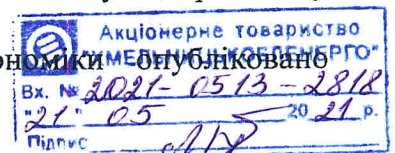 Акціонерне товариство
"ХМЕЛЬНИЦЬКОБЛЕНЕРГО"
ономіки опубліковано
Вх. № 2021-0513-2818
"21" 05 20 21 р.
Підпис